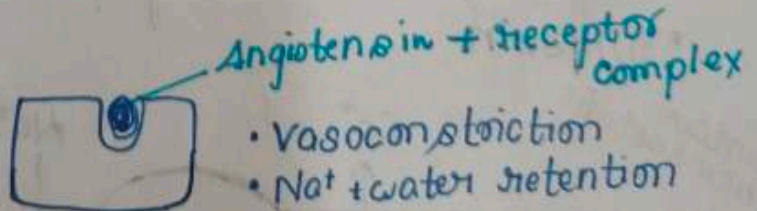 Angiotensin + receptor
complex
• Vasoconstriction
• Na⁺ + water retention